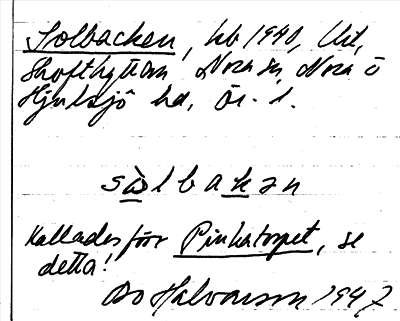 Solbacken, hb 1940, Utl,
Skofthyttan Nora sn, Nora o
Hjulsjö hd, Ör. l.
sòlbakən
Kallades förr Pinkatorpet, se
detta!
Bo Halvarson 1947